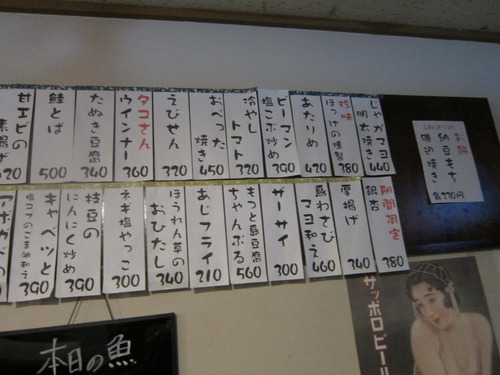 じゃがマヨ
明太焼き
440
珍味
ほっけの燻製
380
あたりめ
420
ピーマン
塩こぶ炒め
390
冷やし
トマト
320
おぺった
焼き
450
えびせん
320
タコさん
ウインナー
360
たぬき豆腐
340
鮭とば
500
甘エビの
素揚げ
期間限定
銀杏
380
厚揚げ
340
鳥わさび
マヨ和え
460
ザーサイ
300
もっと島豆腐
ちゃんぷる
560
あじフライ
210
ほうれん草の
おひたし
340
ネギ塩やっこ
300
枝豆の
にんにく炒め
390
キャベツと
塩コブのごま油和え
390
アボカドの
お餅
納豆もち
磯辺焼き
各270円
本日の魚
サッポロビール